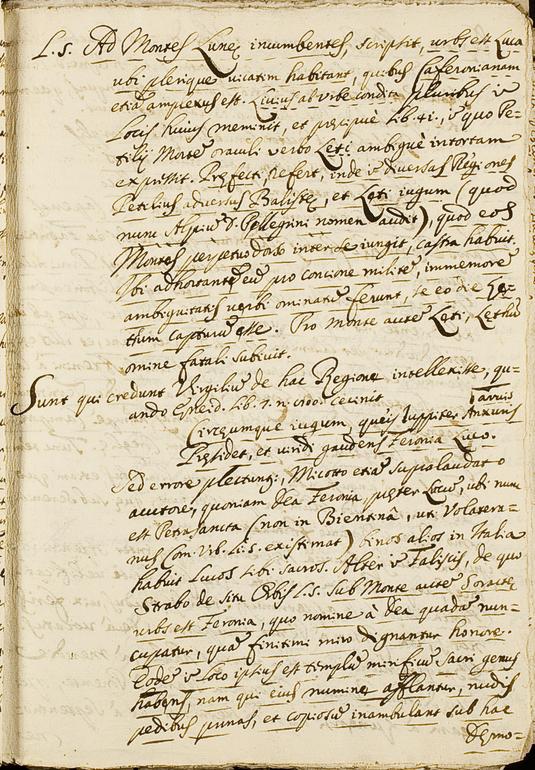 L. 5. Ad Montes Lunę incumbentes, scripsit, urbs est Luca
ubi plerique vicatim habitant, quibus Caferonianam
etiā amplexus est. Livius ab vrbe condita pluribus ī
Locis huius meminit, et pręcipuè Lib. 41., ī quo Pe=
tilij Morte oraculi verbo Leti ambiguè intortam
expressit. Pręfecti, refert, inde ī diversas Regiones
Petilius adversus Balistę, et Leti iugum (quod
nunc Alpiū D. Pellegrini nomen audit), quod eos
Montes perpetuo dorso inter se iungit, castra habuit.
Ibi adhortantē eū pro concione milite, immemorē
ambiguitatis verbi ominatū ferunt, se eo die Le=
thum capturū esse. Pro Monte autē Leti, Lethū
omine fatali subivit.
Sunt qui credunt Virgiliū de hac Regione intellexisse, qu=
ando Ęneid. Lib. 7. n. 1000. cecinit
Tarvis
Circęumque iugum, queis Iuppiter Anxuris
Pręsidet, et viridi gaudens Feronia Luco.
Sed errore plectuntur, Micotto etiā supralaudato
auctore, quoniam dea Feronia pręter Locū, ubi nunc
est Petrasancta (non in Bientinâ, uti Volatera=
nus Com. Urb. Li. 5. existimat) binos alios in Italia
habuit Lucos sibi sacros. Alter ī Faliscis, de quo
Strabo de situ Orbis L. 5. Sub Monte autē Soractę
urbs est Feronia, quo nomine à dea quadā nun=
cupatur, quā finitimi miro dignantur honore.
Eodē ī Loco ipsius est templū mirificū Sacri genus
habens, nam qui eius numine afflantur, nudis
pedibus prunas, et copiosū inambulant sub hac
Dęmo=